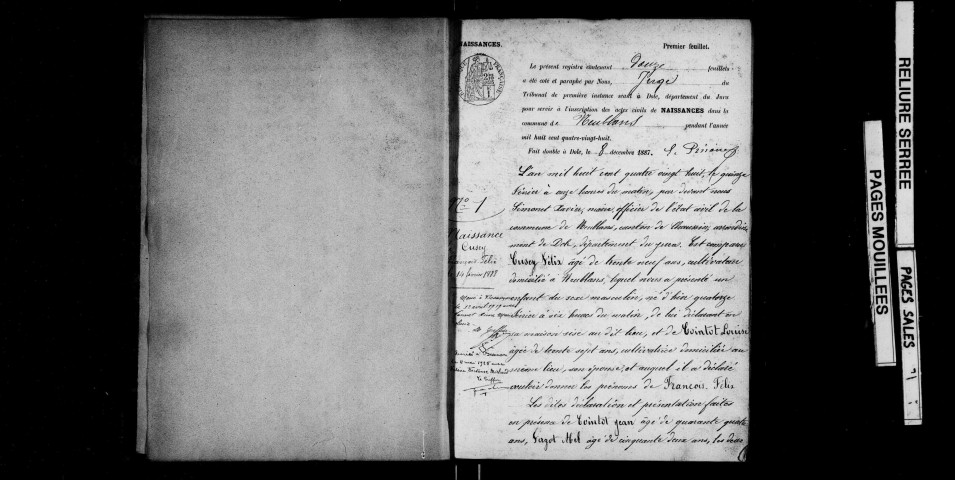 NAISSANCES.
Premier feuillet.
Le présent registre contenant douze feuillets
a été coté et paraphé par Nous, Juge du
Tribunal de première instance séant à Dole, département du Jura
pour servir à l'inscription des actes civils de NAISSANCES dans la
commune de Neublans pendant l'année
mil huit cent quatre-vingt-huit.
Fait double à Dole, le 8 décembre 1887.
L'an mil huit cent quatre vingt huit, le quinze
février à onze heures du matin, par devant nous
Simonet Xavier, maire, officier de l'état civil de la
commune de Neublans, canton de Chaussin, arrondisse
ment de Dole, département du Jura. Est comparu
Cusey Félix âgé de trente neuf ans, cultivateur
domicilié à Neublans, lequel nous a présenté un
enfant du sexe masculin, né d'hier quatorze
février à six heures du matin, de lui déclarant en
sa maison sise au dit lieu, et de Cointot Louise
âgée de trente sept ans, cultivatrice domiciliée au
même lieu, son épouse, et auquel il a déclaré
vouloir donner les prénoms de François Félix
Les dites déclaration et présentation faites
en présence de Cointot Jean âgé de quarante quatre
ans, Gagot Mel âgé de cinquante deux ans, les deux
No 1
Naissance
Cusey
François Félix
14 février 1888
RELIURE SERREE
PAGES MOUILLEES
PAGES SALES